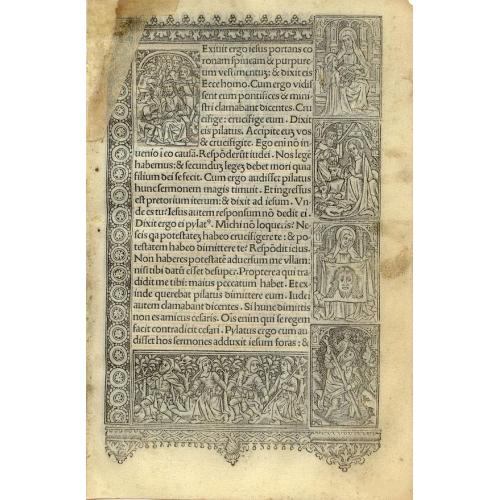 Exivit ergo iesus portans co
ronam spineam & purpure
um vestimentuz: & dixit eis
Ecce homo. Cum ergo vidis
sent eum pontifices & mini
stri clamabant dicentes. Cru
cifige: crucifige eum. Dixit
eis pilatus. Accipite euz vos
& crucifigite. Ego eni nō in
uenio i eo causā. Respōderūt iudei. Nos legē
habemus: & secunduz legez debet mori quia
filium dei se fecit. Cum ergo audisset pilatus
hunc sermonem magis timuit. Et ingressus
est pretorium iterum: & dixit ad iesum. Vn-
de es tu? Iesus autem responsum nō dedit ei.
Dixit ergo ei pylatꝰ. Michi nō loqueris? Ne
scis qa potestatez habeo crucifigere te: & po
testatem habeo dimittere te? Respōdit iesus.
Non haberes potestatē aduersum me vllam:
nisi tibi datū esset desuper. Propterea qui tra
didit me tibi: maius peccatum habet. Et ex
inde querebat pilatus dimittere eum. Iudei
autem clamabant dicentes. Si hunc dimittis
non es amicus cesaris. Ois enim qui se regem
facit contradicit cesari. Pylatus ergo cum au
disset hos sermones adduxit iesum foras: &